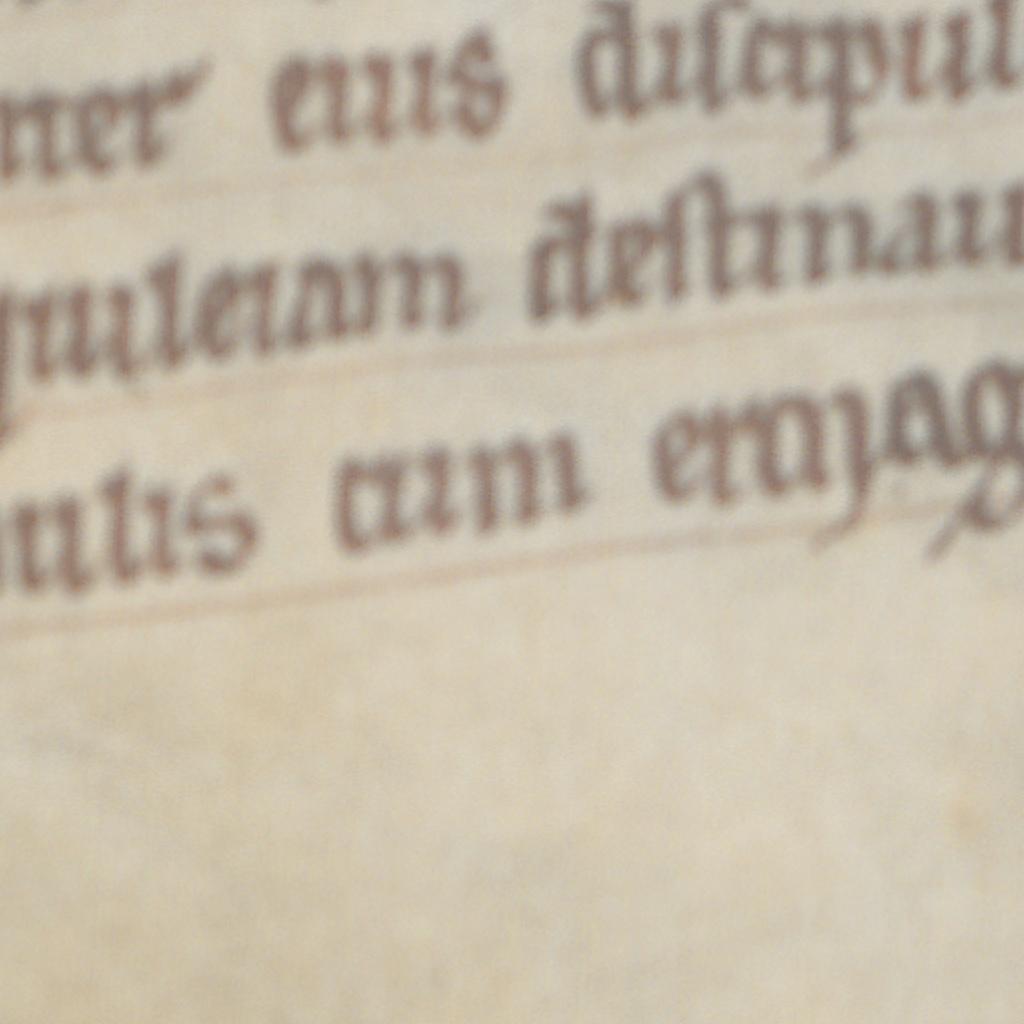 ner eius discipul
quileiam destinau
ulis cum